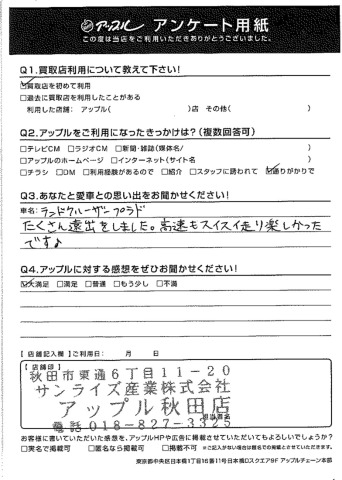 アップル アンケート用紙
この度は当店をご利用いただきありがとうございました。
Q1.買取店利用について教えて下さい!
☑買取店を初めて利用
□過去に買取店を利用したことがある
利用した店舗：アップル( )店 その他( )
Q2.アップルをご利用になったきっかけは?(複数回答可)
□テレビCM □ラジオCM □新聞・雑誌(媒体名/ )
□アップルのホームページ □インターネット(サイト名 )
□チラシ □DM □利用経験があるので □紹介 □スタッフに誘われて ☑通りがかりで
Q3.あなたと愛車との思い出をお聞かせください!
車名：ランドクルーザープラド
たくさん遠出をしました。高速もスイスイ走り楽しかった
ですよ
Q4.アップルに対する感想をぜひお聞かせください!
☑大満足 □満足 □普通 □もう少し □不満
【店舗記入欄】ご利用日： 月 日
【店舗印】
秋田市東通6丁目11-20
サンライズ産業株式会社
アップル秋田店
担当者名
電話018-827-3325
お客様に書いていただいた感想を、アップルHPや広告に掲載させていただいてもよろしいでしょうか?
□実名で掲載可 □匿名なら掲載可 □掲載不可 ※ご記入がない場合は匿名で掲載とさせていただきます。
東京都中央区日本橋1丁目16番11号日本橋Dスクエア9F アップルチェーン本部